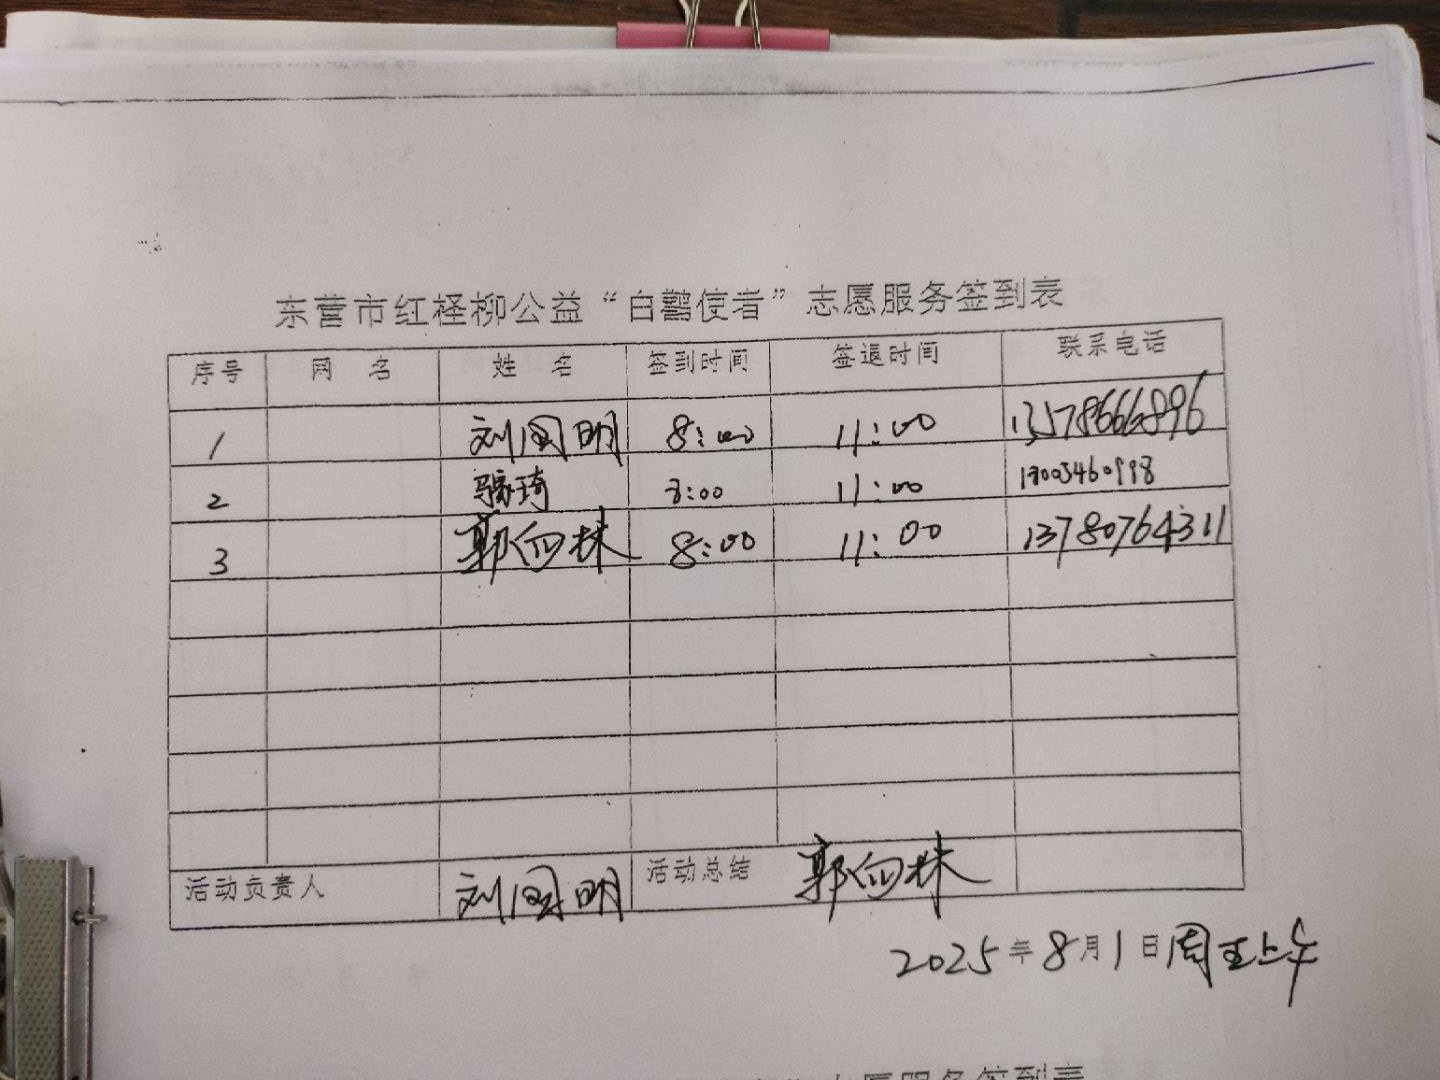 东营市红柽柳公益“白鹳使者”志愿服务签到表
序号 网 名 姓 名 签到时间 签退时间 联系电话
1 刘国明 8:00 11:00 13578666896
2 琦 8:00 11:00
3 郭向林 8:00 11:00 13780764311
活动负责人 刘国明 活动总结 郭向林
2025年8月1日周五上午
志愿服务签到表